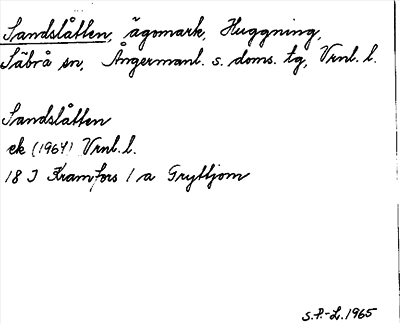 Sandslåtten, ägomark, Huggning,
Säbrå sn, Ångermanl. s. doms. tg, Vrnl. l.
Sandslåtten
ek (1964) Vrnl. l.
18 J Kramfors 1 a Gryttjom
S.P.-L. 1965